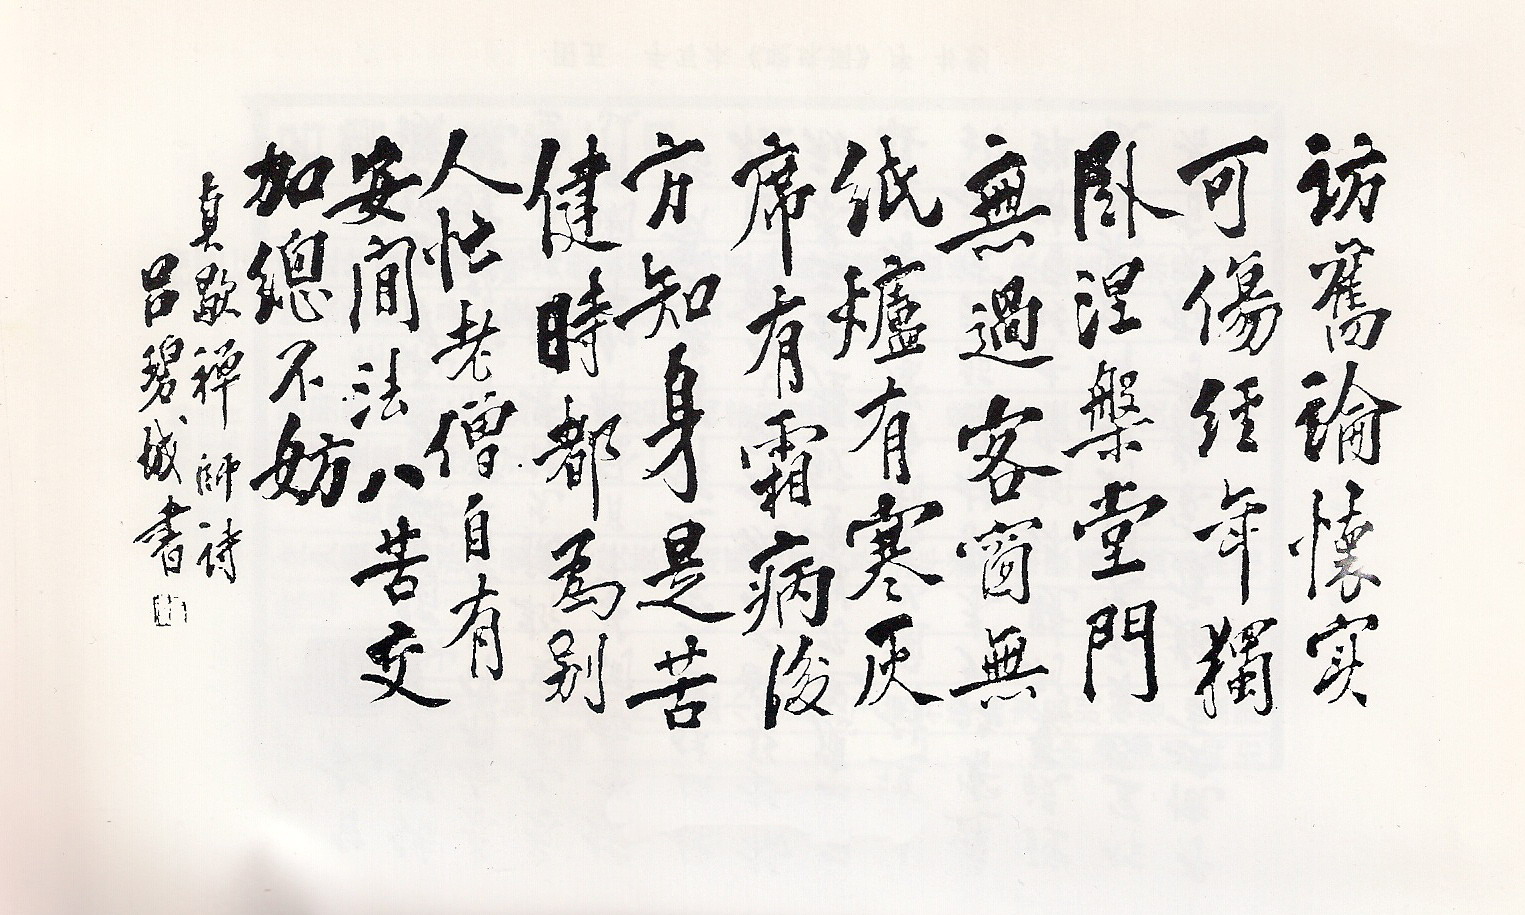 訪舊論懷实
可傷經年獨
臥涅槃堂門
無過客窗無
紙爐有寒灰
席有霜病後
方知身是苦
健時都為别
人忙老僧自有
安閒法八苦交
加總不妨
貞歇禅師诗
吕碧城書